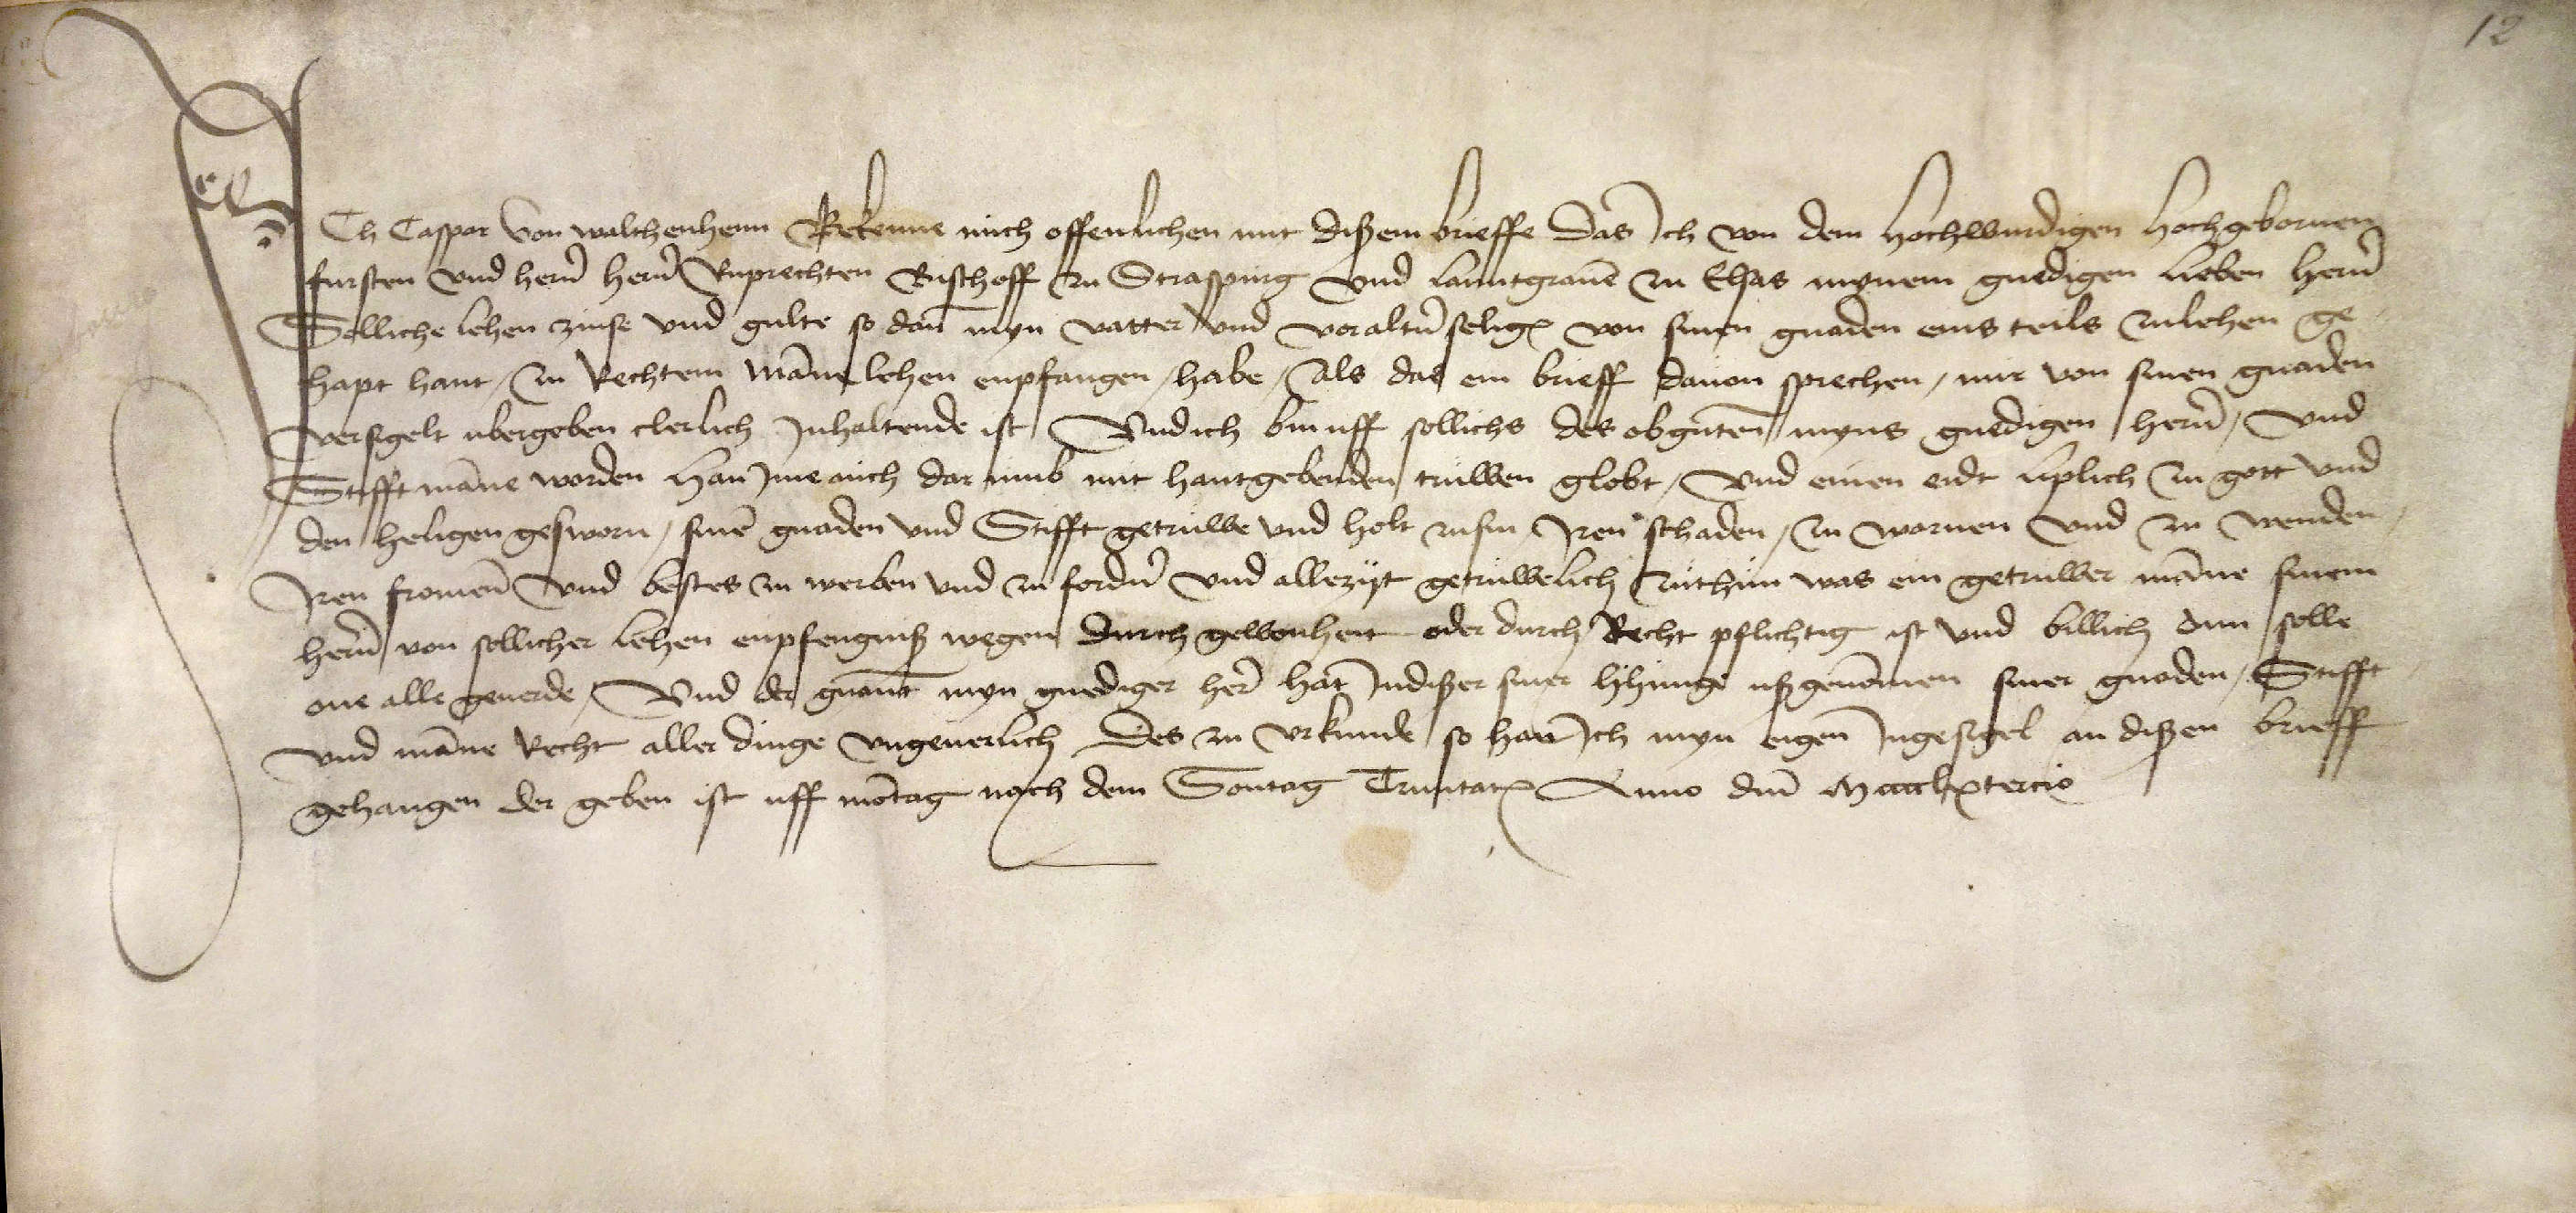 12
Ich Caspar von walthenhem Bekenne mich offenlichen mit dißem brieffe Das Ich von dem Hochwurdigen Hochgebornen
fursten vnd hern̄ hern̄ Ruprechten Bischoff zu Straspurg vnd lanntgrauē zu Elsas mynem gnedigen lieben hern̄
Solliche lehen zinse vnd gulte so dan̄ myn vatter vnd voraltn̄ selig von sinen gnaden eins teils zulehen ge-
hapt hant / zu Rechtem māne lehen enpfangen / habe / Als das ein brieff dauon sprechen / mir von sinen gnaden
versigelt ubergeben clerlich Inhaltende ist / Vnd ich bin uff sollichs des obgnten̄ myns gnedigen hern̄ / vnd
Stifft māne worden Han Ime auch dar vmb mit hantgebenden truwen globt / vnd einen eidt liplich zu gott vnd
den heligen gesworn / sinē gnaden vnd Stifft getruwe vnd holt zusin Iren schaden / zu warnen vnd zu wenden /
Iren fromen̄ vnd bestes zu werben vnd zu fordn̄ vnd allezyt getruwelich zuthun was ein getruwer māne sinem
hern̄ von sollicher lehen enpfengniß wegen durch gewonheit oder durch Recht pflichtig ist vnd billich dun solle
one alle geuerde / Vnd der gnant myn gnediger her̄ hat Indißer siner lyhunge ußgenōmen siner gnaden / Stifft
vnd māne Recht aller dinge vngeuerlich Des zu vrkunde so han Ich myn eigen Ingesigel an dißen brieff
gehangen der geben ist uff mōtag nach dem Sontag Trinitat Anno dm̄ Mcccclxtercio